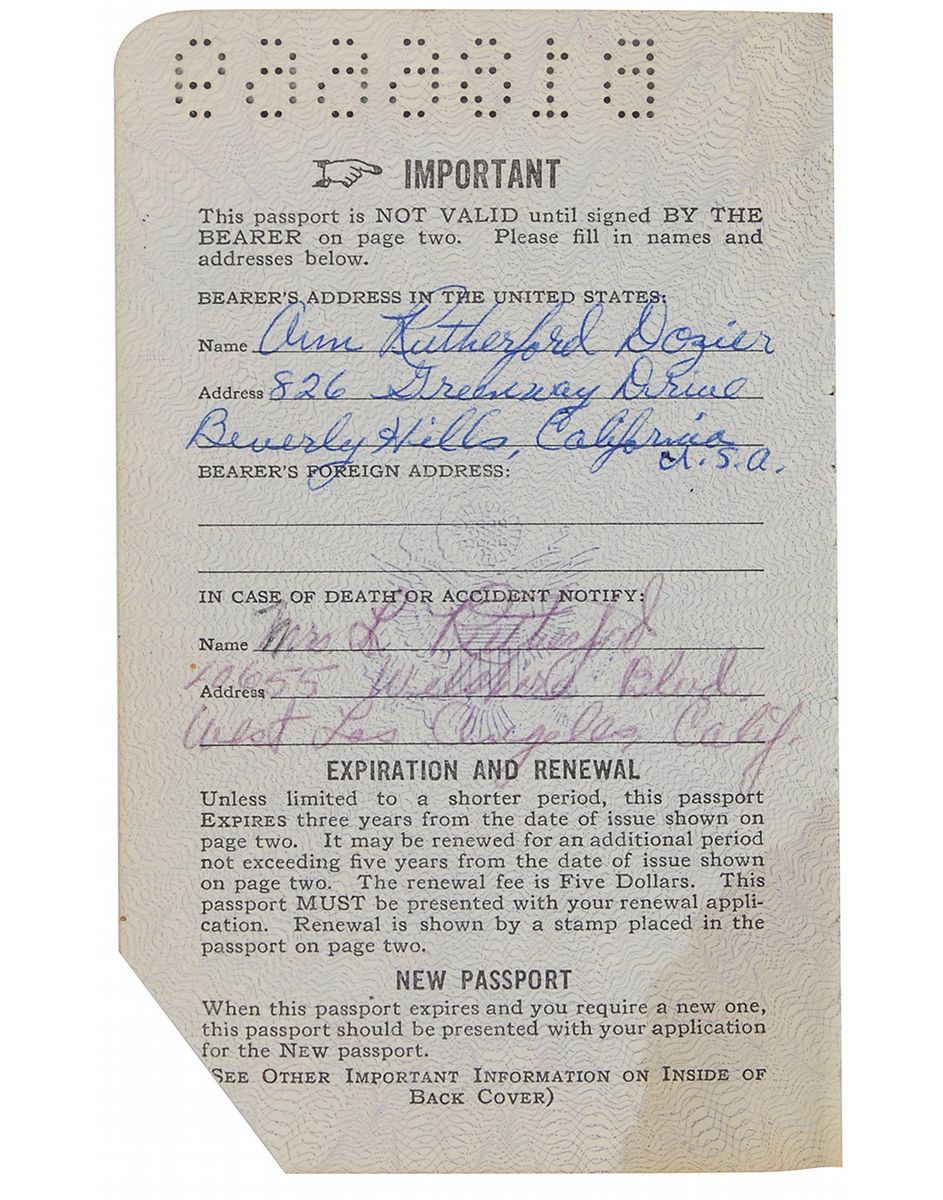 IMPORTANT
This passport is NOT VALID until signed BY THE
BEARER on page two. Please fill in names and
addresses below.
BEARER'S ADDRESS IN THE UNITED STATES:
Name Ann Rutherford Dozier
Address 826 Greenway Drive
Beverly Hills, California
U.S.A.
BEARER'S FOREIGN ADDRESS:
IN CASE OF DEATH OR ACCIDENT NOTIFY:
Name Mrs L Rutherford
Address 10655 Wilshire Blvd.
West Los Angeles Calif.
EXPIRATION AND RENEWAL
Unless limited to a shorter period, this passport
EXPIRES three years from the date of issue shown on
page two. It may be renewed for an additional period
not exceeding five years from the date of issue shown
on page two. The renewal fee is Five Dollars. This
passport MUST be presented with your renewal appli-
cation. Renewal is shown by a stamp placed in the
passport on page two.
NEW PASSPORT
When this passport expires and you require a new one,
this passport should be presented with your application
for the NEW passport.
SEE OTHER IMPORTANT INFORMATION ON INSIDE OF
BACK COVER)